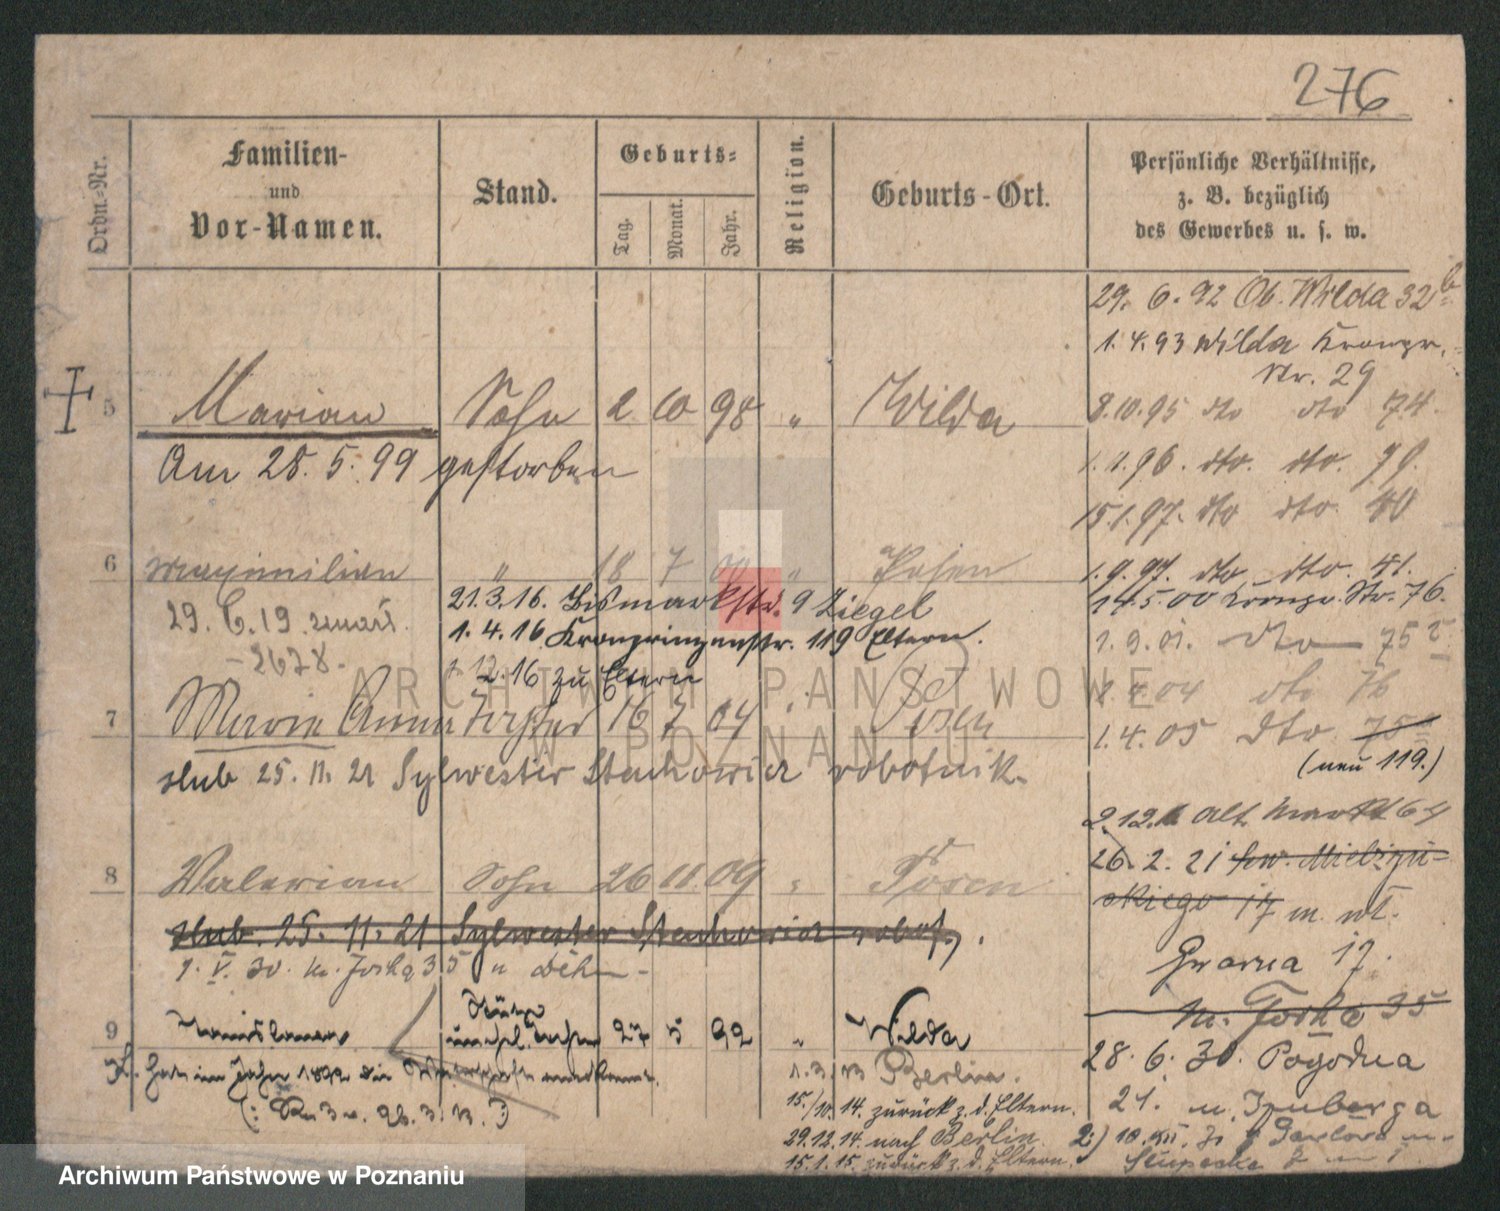 276
Ordn.-Nr.
Familien-
und
Vor-Namen.
Stand.
Geburts-
Tag.
Monat.
Jahr.
Religion.
Geburts-Ort.
Persönliche Verhältnisse,
z. B. bezüglich
des Gewerbes u. s. w.
29. 6. 92 Ob. Wilda 32b
1. 4. 93 Wilda Kronpr.
Str. 29
5 Marian Sohn 2. 10 98 " Wilda
8.10.95 dto dto 74.
Am 28. 5. 99 gestorben
1.1.96. dto. dto.
15.1.97. dto dto. 40
6 Maximilian " 18 7 00 " Posen
1.9.97. dto dto. 41.
21.3.16. Bismarkstr. 9 Ziegel
14.5.00 Kronpr. Str. 76.
29. 6. 19. zmarł.
1. 4. 16 Kronprinzenstr. 119 Eltern.
1.9.01. dto 75
- 2678 -
1 12.16 zu Eltern
1.4.04 dto 76
7 Marie Anna Tochter 16 7 04 " Posen
1.4.05 dto 75
(neu 119.)
slub 25. 11. 21 Sylwester Stachowicz robotnik.
2.12. Alt. Markt 64
26. 2. 21 św. Mielżyń-
skiego 17 m. wł.
8 Valerian Sohn 26 11 09 " Posen
slub. 25. 11. 21 Sylwester Stachowicz robot.
Gwarna 17.
1. V. 30. m. Joska 35 u
m. Joska 35
9 27 5 92 " Wilda
28. 6. 30. Pogodna
im Jahr 1892 die
1.3.13 Berlin.
21. u.
15./10.14. zurück z. d. Eltern.
29.12.14. nach Berlin.
2.) 10. XII. 30
15.1.15. zurück z. d. Eltern.
ARCHIWUM PAŃSTWOWE
W POZNANIU
Archiwum Państwowe w Poznaniu